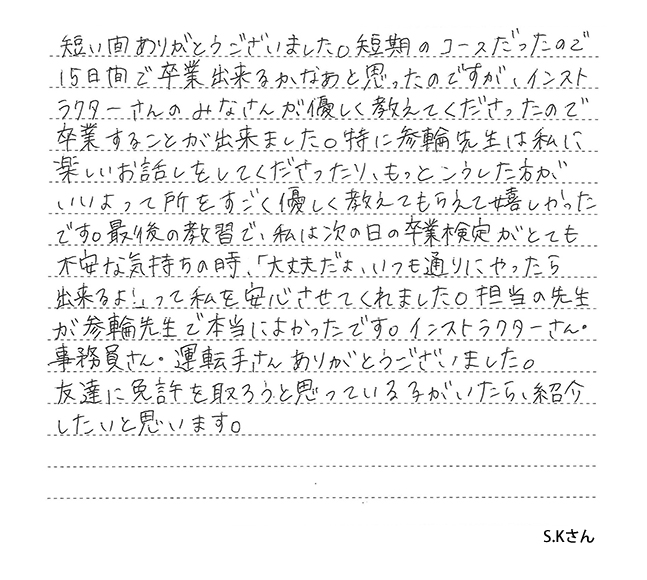 短い間ありがとうございました。短期のコースだったので
15日間で卒業出来るかなあと思ったのですが、インスト
ラクターさんのみなさんが優しく教えてくださったので
卒業することが出来ました。特に参輪先生は私に
楽しいお話しをしてくださったり、もっとこうした方が
いいよって所をすごく優しく教えてもらえて嬉しかった
です。最後の教習で、私は次の日の卒業検定がとても
不安な気持ちの時、「大丈夫だよ、いつも通りにやったら
出来るよ!」って私を安心させてくれました。担当の先生
が参輪先生で本当によかったです。インストラクターさん・
事務員さん・運転手さんありがとうございました。
友達に免許を取ろうと思っている子がいたら、紹介
したいと思います。
S.Kさん